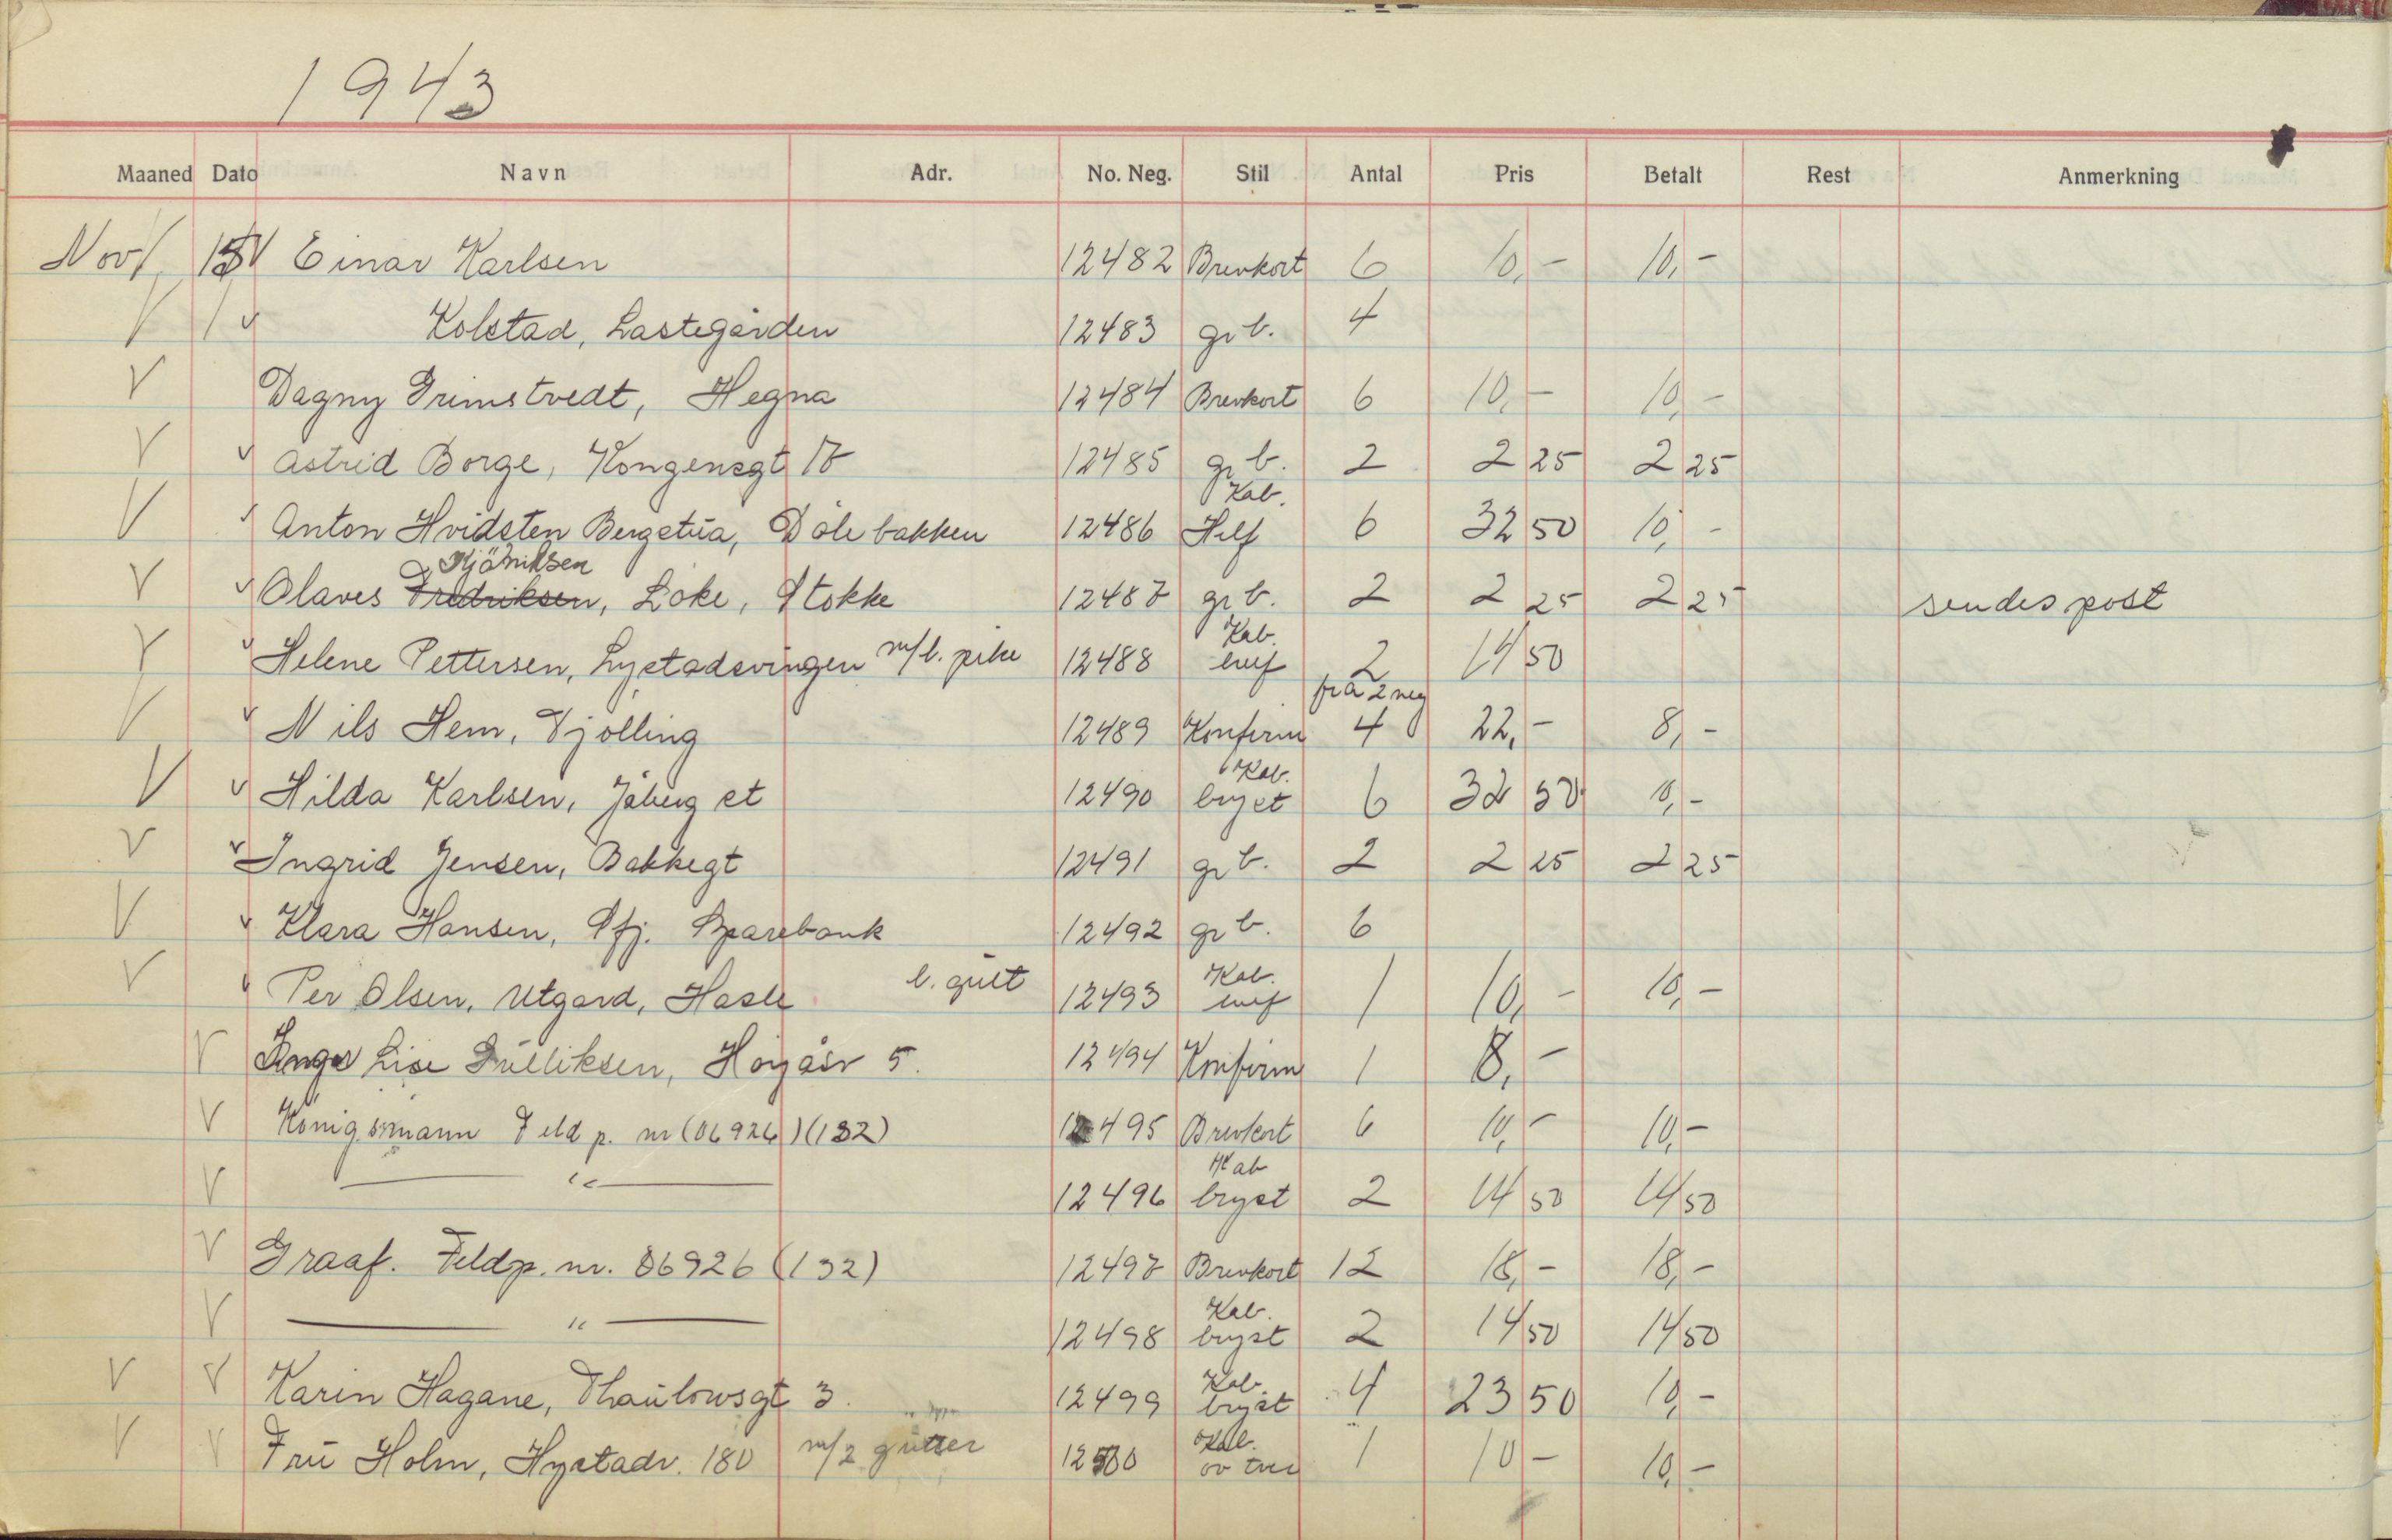 1943
Maaned Dato Navn Adr. No. Neg. Stil Antal Pris Betalt Rest Anmerkning
Nov. 15 V Einar Karlsen 12482 Brevkort 6 10,- 10,-
V / v Kolstad, Lastegården 12483 gr b. 4
V Dagny Grimstvedt, Hegna 12484 Brevkort 6 10,- 10,-
V v Astrid Borge, Kongensgt 12485 gr b. 2 2 25 2 25
Kab.
V v Anton Hvidsten Bergstua, Döle bakken 12486 Helf 6 32 50 10,-
V v Olaves Fredriksen, Löke, Stokke 12487 gr b. 2 2 25 2 25 sendes post
Kab.
V v Helene Pettersen, Lystadsvingen m/l. pike 12488 2 14 50
fra 2 neg
V v Nils Hem, Tjölling 12489 Konfirm 4 22,- 8,-
Kab.
V v Hilda Karlsen, Jåberg st 12490 bryst 6 32 50 10,-
V v Ingrid Jensen, Bakkegt 12491 gr b. 2 2 25 2 25
V v Klara Hansen, Sfj. Sparebank 12492 gr b. 6
Kab.
V v Per Olsen, Utgard, Hasle l. gutt 12493 1 10,- 10,-
V Inger Lise Gulliksen, Høyåsv 5. 12494 Konfirm 1 8,-
V Königsmann Feldp. nr (06926) (132) 12495 Brevkort 6 10,- 10,-
Kab
V — " — 12496 bryst 2 14 50 14 50
V Graaf. Feldp. nr. 06926 (132) 12497 Brevkort 12 18,- 18,-
Kab.
V — " — 12498 bryst 2 14 50 14 50
Kab
V V Karin Hagane, Thaulowsgt 3. 12499 bryst 4 23 50 10,-
Kab.
V V Fru Holm, Hystadv. 180 m/2 gutter 12500 1 10 - 10,-